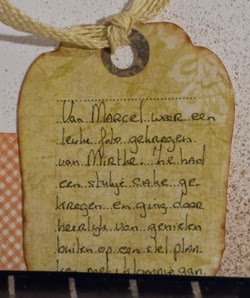 Van Marcel weer een
leuke foto gekregen
van Mirthe. Ze had
een stukje cake ge-
kregen en ging daar
heerlijk van genieten
buiten op een